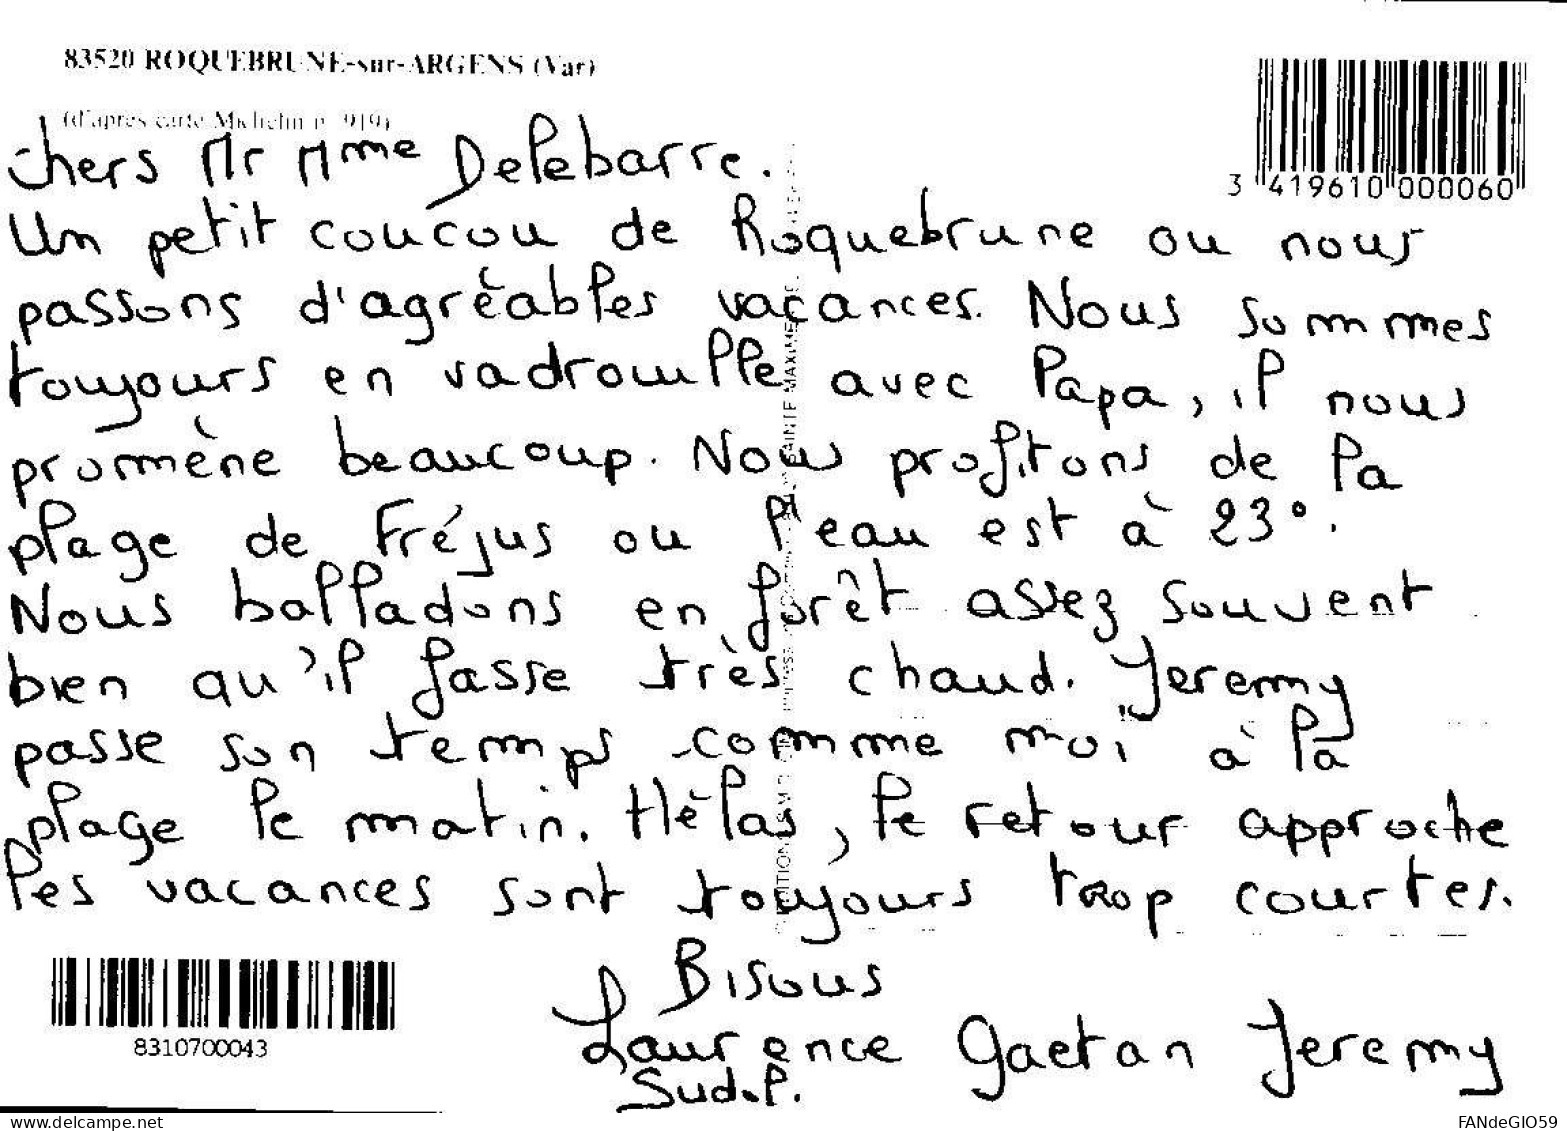 83520 ROQUEBRUNE-sur-ARGENS (Var)
(d'après carte Michelin n° 919)
3 419610 000060
chers Mr Mme Delebarre.
Un petit coucou de Roquebrune ou nous
passons d'agréables vacances. Nous sommes
toujours en vadrouille avec Papa, il nous
promène beaucoup. Nous profitons de la
plage de Fréjus ou l'eau est à 23°.
Nous balladons en forêt assez souvent
bien qu'il fasse très chaud. Jeremy
passe son temps comme moi à la
plage le matin. Hélas, le retour approche
les vacances sont toujours trop courtes.
Bisous
Laurence Gaetan Jeremy
Sud.P.
8310700043
www.delcampe.net
FANdeGIO59